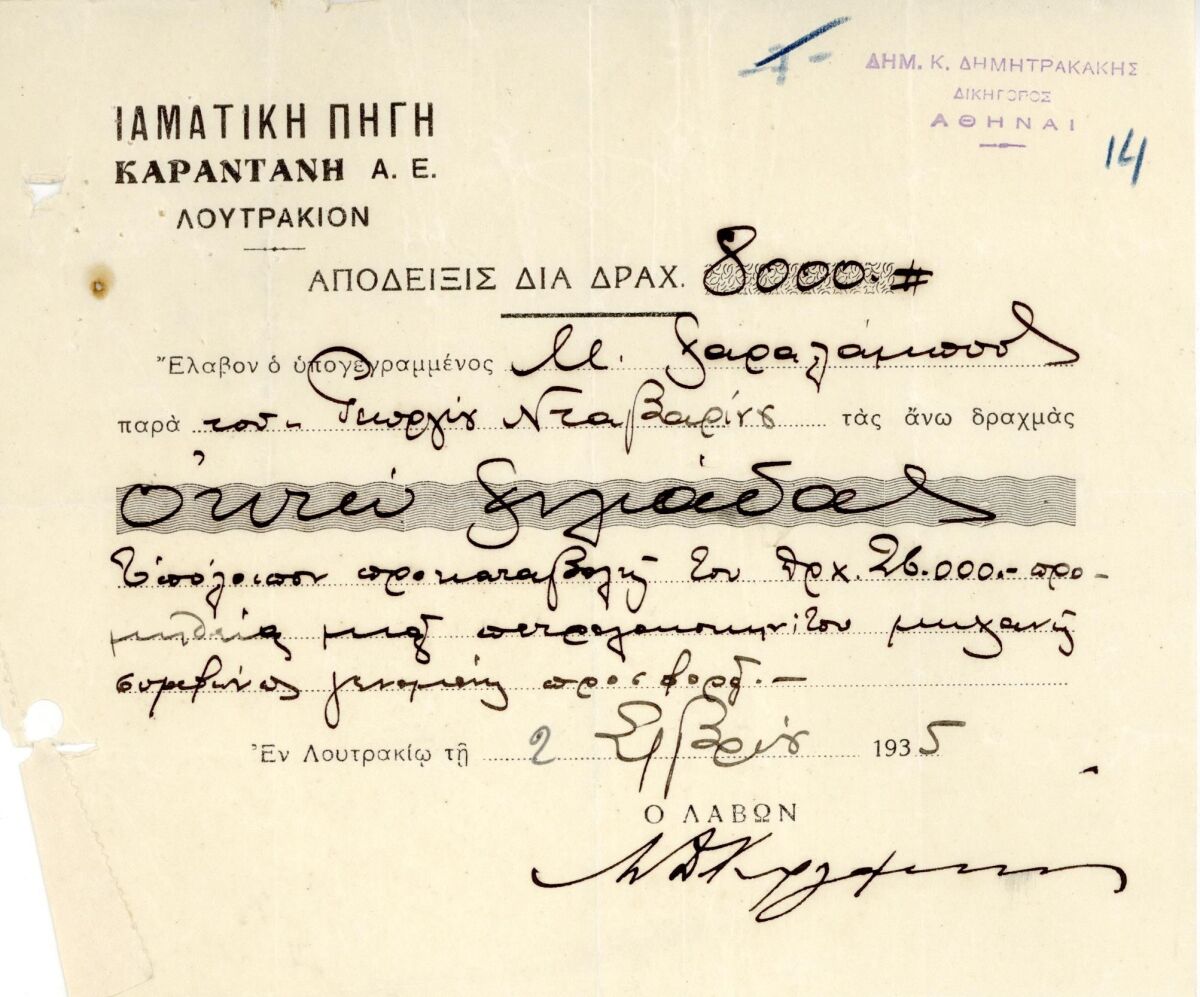 ΔΗΜ. Κ. ΔΗΜΗΤΡΑΚΑΚΗΣ
ΔΙΚΗΓΟΡΟΣ
ΑΘΗΝΑΙ
14
ΙΑΜΑΤΙΚΗ ΠΗΓΗ
ΚΑΡΑΝΤΑΝΗ Α. Ε.
ΛΟΥΤΡΑΚΙΟΝ
ΑΠΟΔΕΙΞΙΣ ΔΙΑ ΔΡΑΧ. 8000.#
Ἔλαβον ὁ ὑπογεγραμμένος Μ. Χαραλάμπους
παρὰ του Γεωργίου Νταβαρίνου τὰς ἄνω δραχμὰς
Ὀκτώ χιλιάδας
Ὑπόλοιπον προκαταβολῆς του Δρχ. 26.000.- προ-
μηθείας μιᾶς πετρελαιοκινήτου μηχανῆς
συμφώνως γενομένης προσφορᾶς.-
Ἐν Λουτρακίῳ τῇ 2 Σ/βρίου 1935
Ο ΛΑΒΩΝ